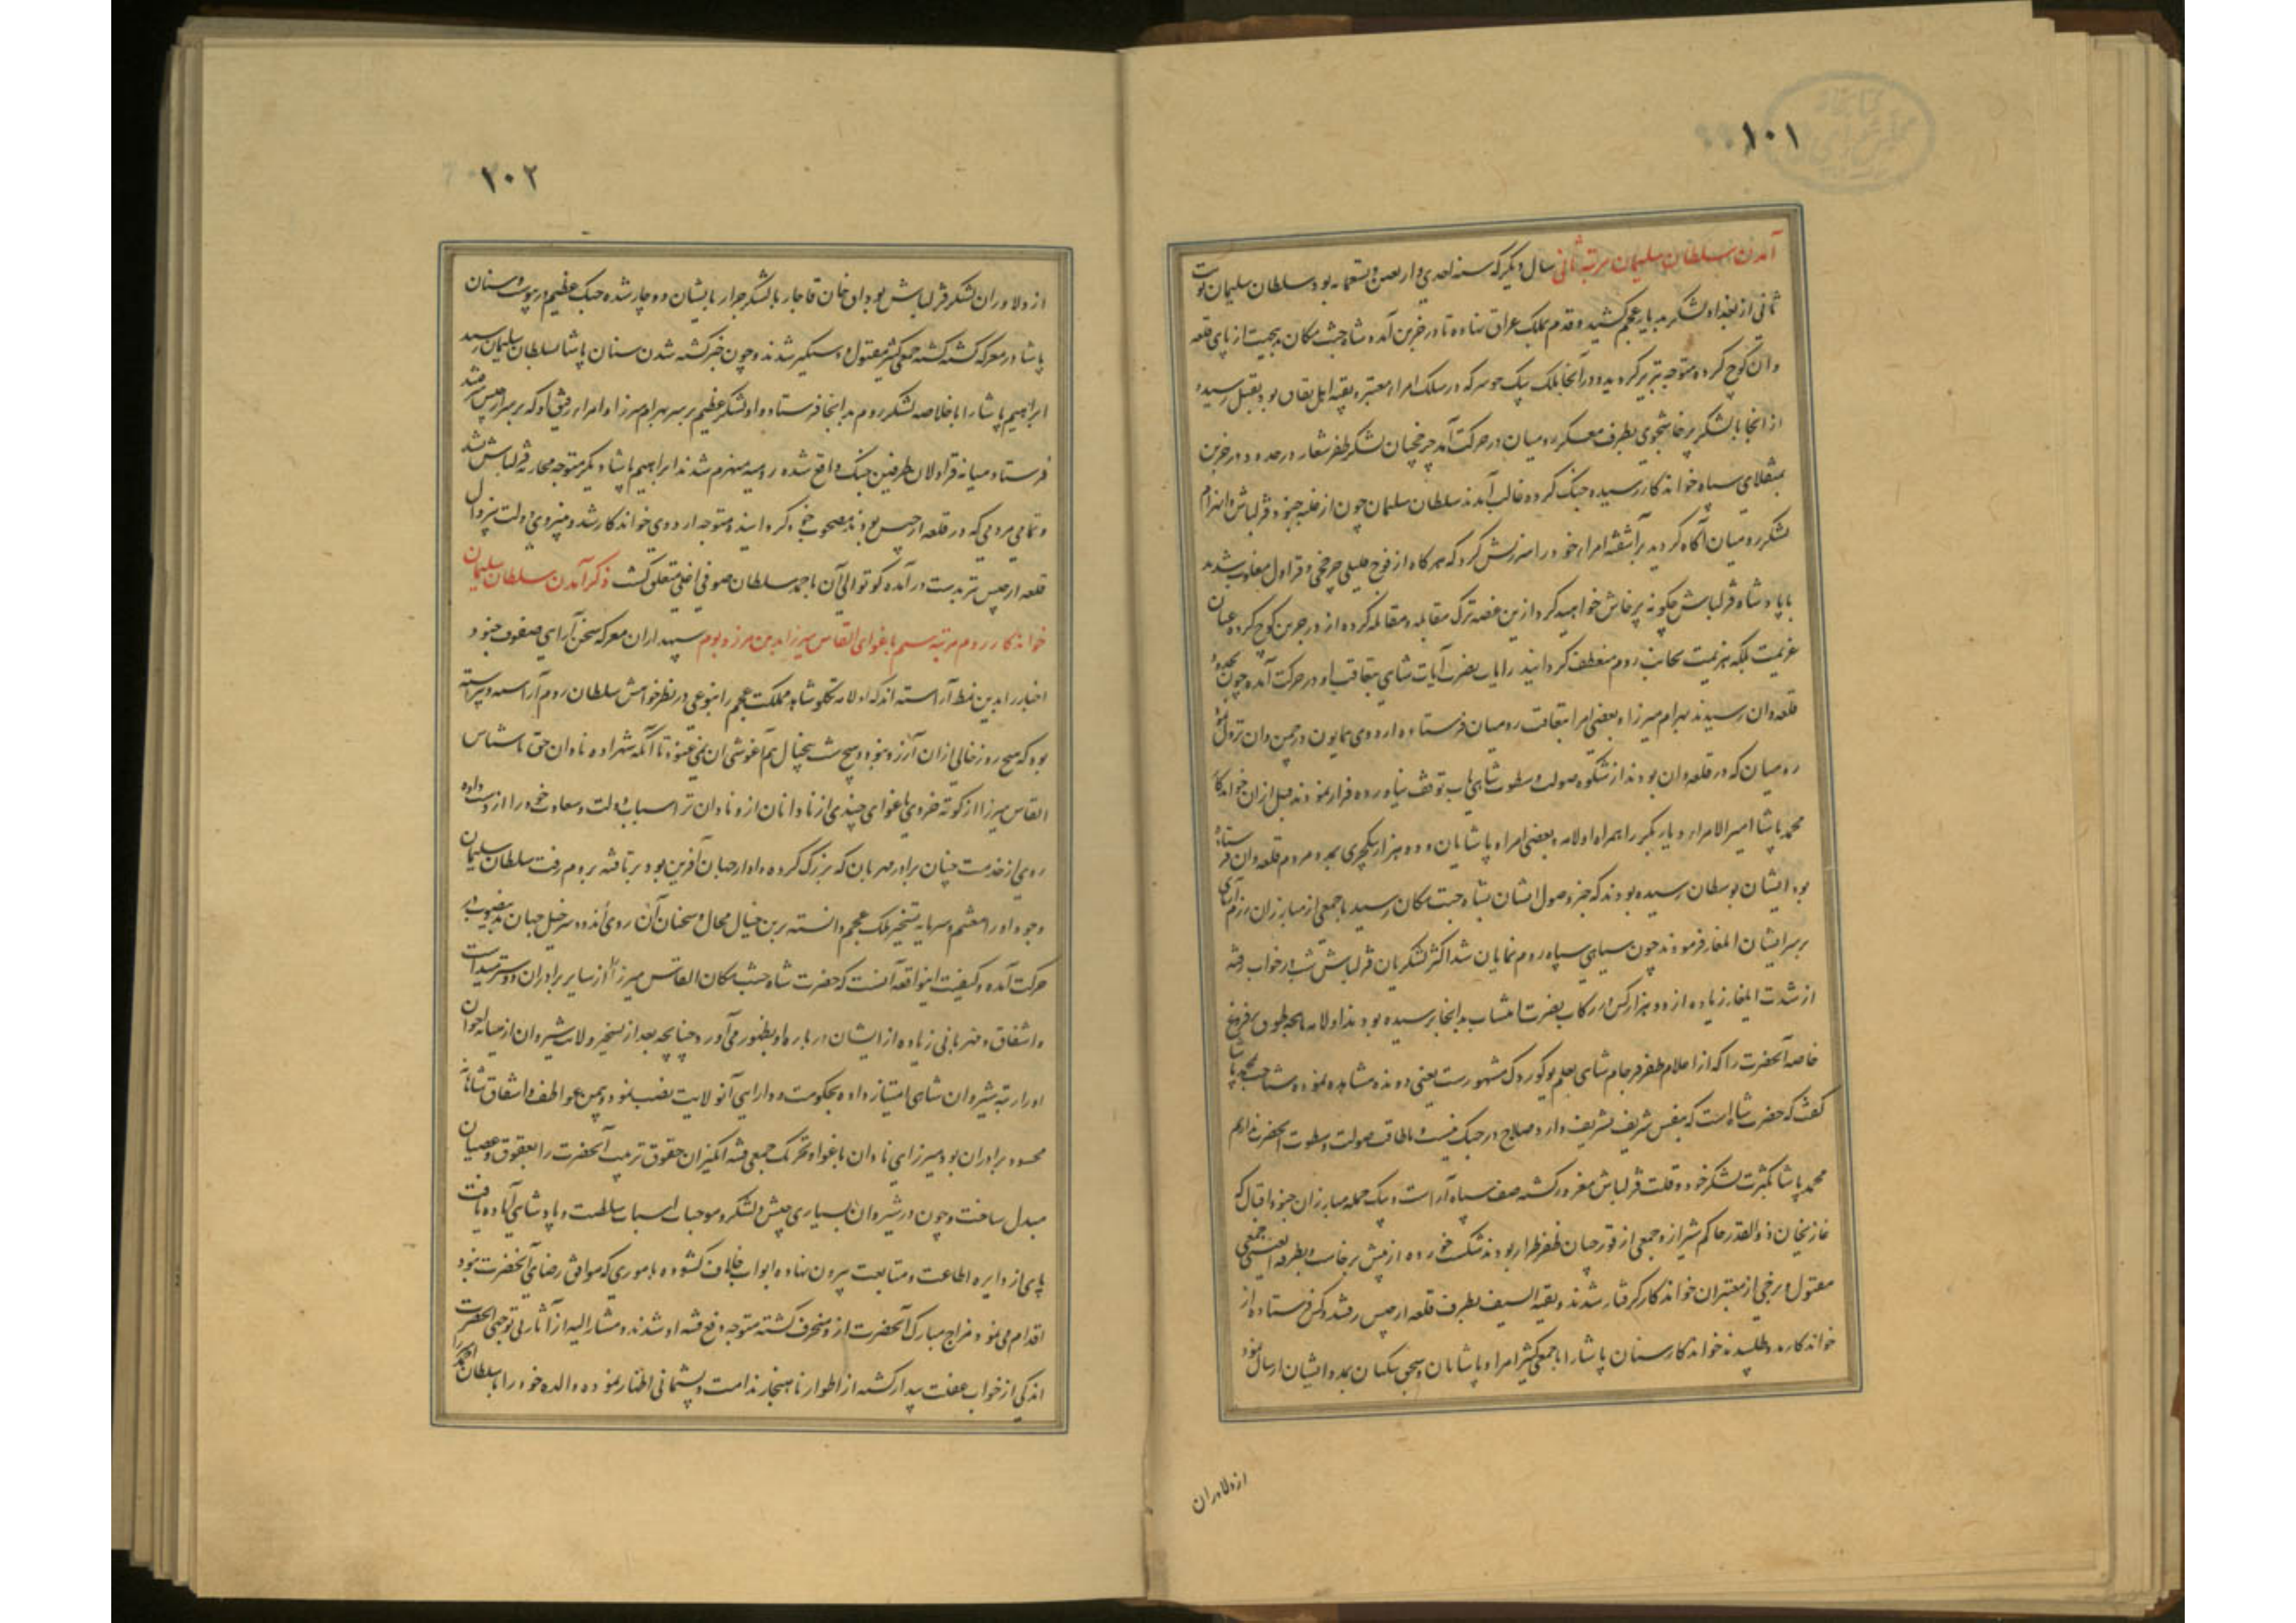 ۱۰۱
آمدن سلطان سلیمان مرتبه ثانی سال دیگر که سنه احدی و اربعین و تسعمایه بود سلطان سلیمان نوبت
ثانی از بغداد لشکر بدیار عجم کشید و قدم بملک عراق نهاده تا درجزین آمد و شاه جنت مکان بجهت از پای قلعه
وان کوچ کرده متوجه تبریز گردید و در آنجا بلک بیک جوسر که در سلک امراء معتبر و بقیه اهل نفاق بود بقتل رسیده
از انجا با لشکر پرخاشجوی بطرف معسکر رومیان در حرکت آمد چرخچیان لشکر ظفر شعار در حدود درجزین
بمنقلای سپاه خواندکار رسیده جنک کرده غالب آمدند سلطان سلیمان چون از غلبه جنود قزلباش و انهزام
لشکر رومیان آگاه گردید برآشفته امراء خود را سرزنش کرد که هرگاه از فوج قلیلی چرخچی و قراول مغلوب شدید
با پادشاه قزلباش چکونه پرخاش خواهید کرد ازین غصه ترک مقابله و مقاتله کرده از درجزین کوچ کرده عنان
عزیمت بلکه هزیمت بجانب روم منعطف گردانید رایات نصرت آیات شاهی بتعاقب او در حرکت آمده چون بحدود
قلعه وان رسیدند بهرام میرزا و بعضی امرا بتعاقب رومیان فرستاده اردوی همایون در چمن وان نزول نمود
رومیان که در قلعه وان بودند از شکوه صولت و سطوت شاهی تاب توقف نیاورده فرار نمودند قبل از ان خواندکار
محمد پاشا امیر الامراء دیار بکر را همراه اولامه و بعضی امراء پاشایان و ده هزار ینکچری بمدد مردم قلعه وان فرستاده
بود ایشان بوسطان رسیده بودند که خبر وصول ایشان بشاه جنت مکان رسید با جمعی از مبارزان رزم آرای
بر سر ایشان ایلغار فرمودند چون سیاهی سپاه روم نمایان شد اکثر لشکریان قزلباش شب در خواب رفته
از شدت ایلغار زیاده از دو هزار کس در رکاب نصرت انتساب بدانجا نرسیده بودند اولامه ماهچه طوق پرفروغ
خاصه آنحضرت را که از اعلام ظفر فرجام شاهی بعلم بوکوردک مشهورست یعنی دونده مشاهده نموده و شناخت بمحمد پاشا
گفت که حضرت شاه است که بنفس شریف تشریف دارد و صلاح در جنک نیست و ما طاقت صولت و سطوت آنحضرت نداریم
محمد پاشا بکثرت لشکر خود و قلت قزلباش مغرور گشته صف سپاه آراست و بیک حمله مبارزان جنود اقبال که
غازیخان ذوالقدر حاکم شیراز و جمعی از قورچیان ظفر طراز بودند شکست خورده از پیش برخاست و بطرفة العینی جمعی
مقتول و برخی از معتبران خواندکار گرفتار شدند و بقیة السیف بطرف قلعه ارجیس رفتند و کس فرستاده از
خواندکار مدد طلبیدند خواندکار سنان پاشا را با جمعی کثیر امراء و پاشایان و سنجق بیکیان بمدد ایشان ارسال نمود
از دلاوران
۱۰۲
از دلاوران لشکر قزلباش بوداق خان قاجار با لشکر جرار بایشان دوچار شده جنک عظیم در پیوست و سنان
پاشا در معرکه کشته گشته جمعی کثیر مقتول و دستگیر شدند و چون خبر کشته شدن سنان پاشا بسلطان سلیمان رسید
ابراهیم پاشا را با خلاصه لشکر روم بدانجا فرستاد و او لشکر عظیم بر سر بهرام میرزا و امراء رفیق او که بر سر ارجیس رفته بودند
فرستاد میانه قراولان طرفین جنک واقع شده رومیه منهزم شدند ابراهیم پاشا دیگر متوجه محاربه قزلباش نشد
و تمامی مردمی که در قلعه ارجیس بودند مصحوب خود گردانیده متوجه اردوی خواندکار شد و بنیروی دولت بیزوال
قلعه ارجیس نیز بدست درآمده کوتوالی آن باحمد سلطان صوفی اغلی متعلق گشت ذکر آمدن سلطان سلیمان
خواندکار روم مرتبه سیم باغوای القاس میرزا بدین مرز و بوم سپهداران معرکه سخن آرایی صفوف جنود
اخبار را بدین نمط آراسته اند که اولامه تکلو شاهد مملکت عجم را بنوعی در نظر خواهش سلطان روم آراسته و پیراسته
بود که هیچ روز خالی از ان آرزو نبود و هیچ شب بیخیال هم آغوشی ان نمی غنود تا آنکه شهزاده نادان حق ناشناس
القاس میرزا از کوته خردی باغوای چندی از نادانان از و نادان تر اسباب دولت و سعادت خود را از دست داده
روی از خدمت چنان برادر مهربان که بزرگ کرده و او را جهان آفرین بود برتافته بروم رفت سلطان سلیمان
وجود او را مغتنم و سرمایه تسخیر ملک عجم دانسته برین خیال محال و سخنان آن روی اندود سرخیل جهان بدین صوب در
حرکت آمده و کیفیت اینواقعه آنست که حضرت شاه جنت مکان القاس میرزا را از سایر برادران دوستر میداشت
و اشفاق و مهربانی زیاده از ایشان در باره او بظهور می آورد چنانچه بعد از تسخیر ولایت شیروان از میانه اخوان
او را رتبه شیروان شاهی امتیاز داده بحکومت و دارایی آنولایت نصب نمود و بیمن عواطف و اشفاق شاهانه
محسود برادران بود میرزای نادان باغوا و تحریک جمعی فتنه انگیزان حقوق تربیت آنحضرت را بعقوق و عصیان
مبدل ساخت و چون در شیروان بسیاری جیش و لشکر و موجبات اسباب سلطنت و پادشاهی آماده یافت
پای از دایره اطاعت و متابعت بیرون نهاده ابواب خلاف گشوده باموری که موافق رضای آنحضرت نبود
اقدام می نمود مزاج مبارک آنحضرت از و منحرف گشته متوجه دفع فتنه او شدند و مشار الیه از آثار بی توجهی آنحضرت
اندکی از خواب غفلت بیدار گشته از اطوار ناهنجار ندامت و پشیمانی اظهار نموده والده خود را با سلطان احمد